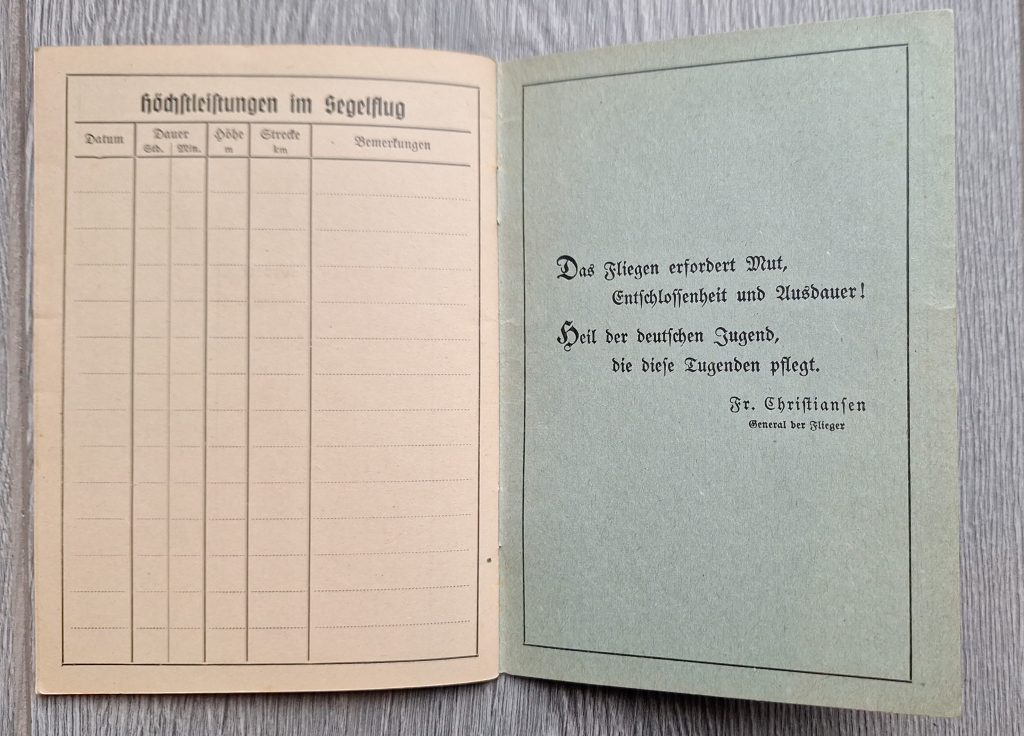 Höchstleistungen im Segelflug
Datum Dauer Höhe Strecke Bemerkungen
Std. Min. m km
Das Fliegen erfordert Mut,
Entschlossenheit und Ausdauer!
Heil der deutschen Jugend,
die diese Tugenden pflegt.
Fr. Christiansen
General der Flieger